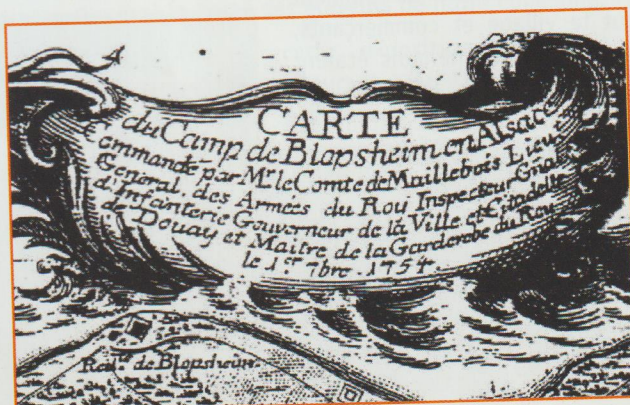 CARTE
du Camp de Blopsheim en Alsace
Commandé par Mr. le Comte de Maillebois Lieut.
General des Armées du Roy Inspecteur Gñal
d'Infanterie Gouverneur de la Ville et Citadelle
de Douay et Maitre de la Garderobe du Roy
le 1er 7bre. 1754.
de Blopsheim